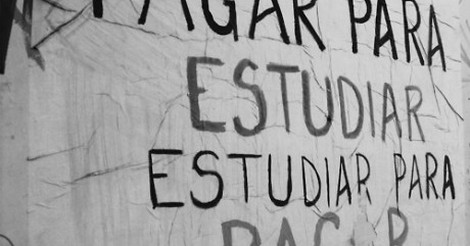 PAGAR PARA
ESTUDIAR
ESTUDIAR PARA
PAGAR